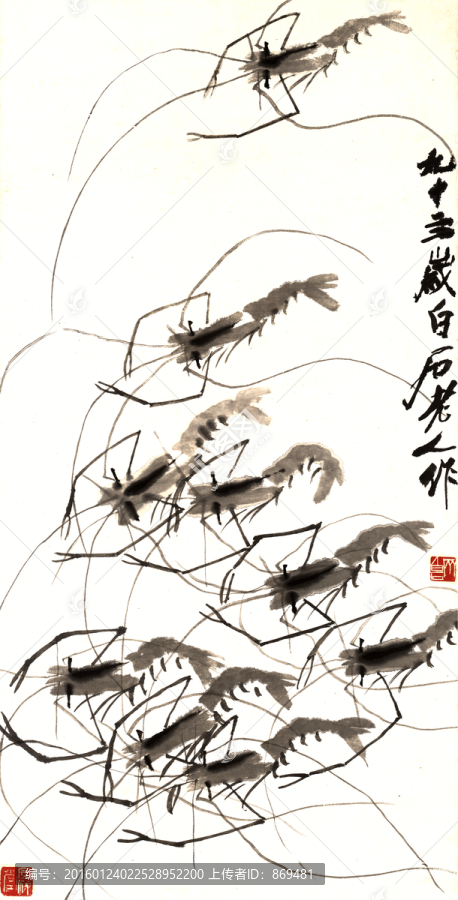 九十三歲白石老人作
编号：20160124022528952200 上传者ID：869481